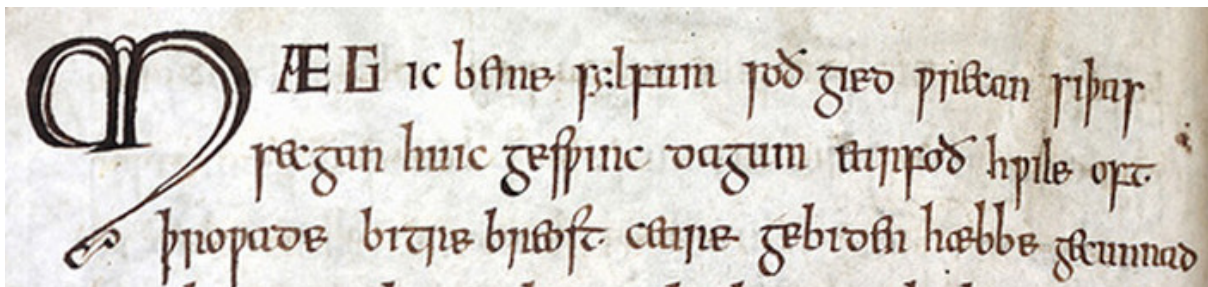 MÆG ic beme sylfum soð gied ƿrecan siþas
secgan huic gesƿinc dagum earfoð hƿile oft·
þroƿade bitre breost· ceare gebiden hæbbe gecunnad